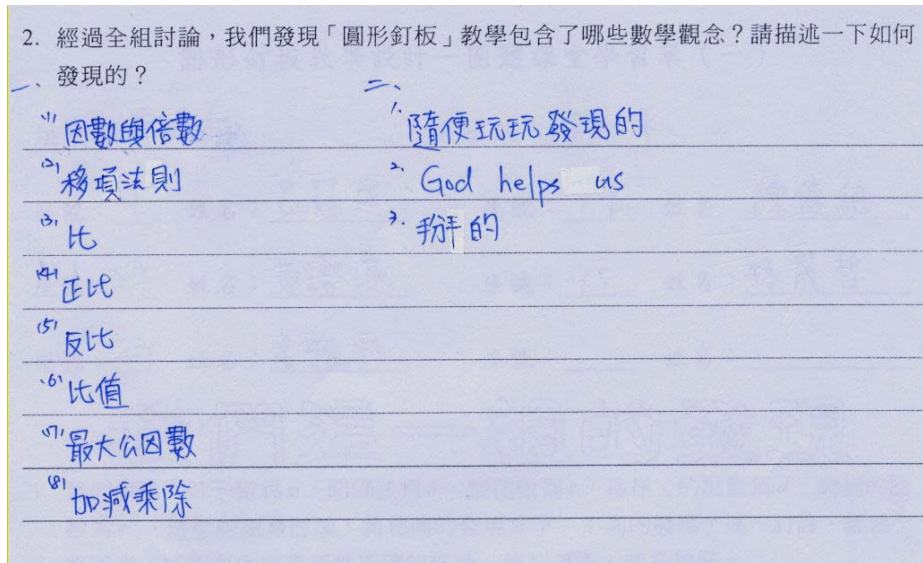 2. 經過全組討論，我們發現「圓形釘板」教學包含了哪些數學觀念？請描述一下如何
發現的？
一、
(1) 因數與倍數
(2) 移項法則
(3) 比
(4) 正比
(5) 反比
(6) 比值
(7) 最大公因數
(8) 加減乘除
二、
1. 隨便玩玩發現的
2. God helps us
3. 掰的